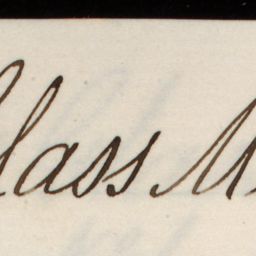 lass M